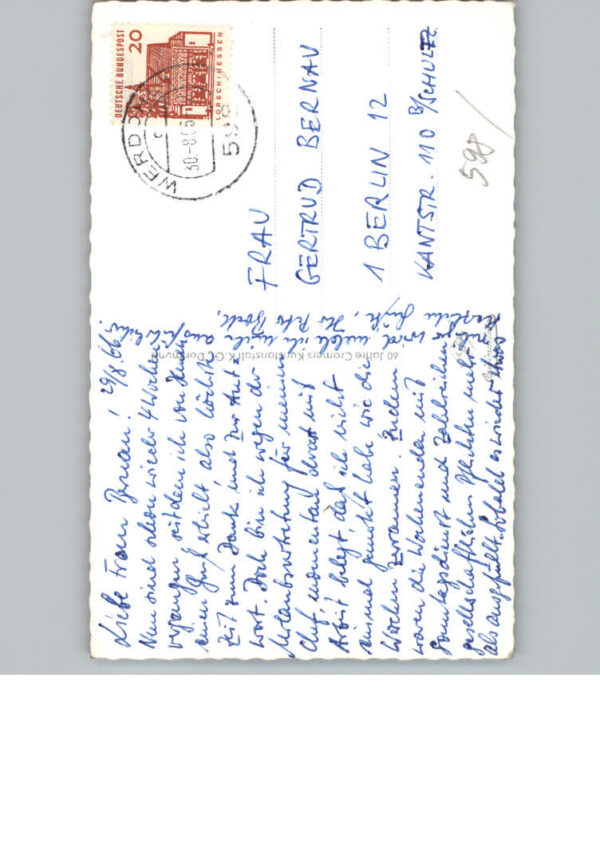 Liebe Frau Bernau! 29/8.66
Nun sind schon wieder 4 Wochen
vergangen seitdem ich von Ihnen
einen Gruß erhielt also höchste
Zeit zum Dank und zur Ant-
wort. Doch bin ich wegen der
Urlaubsvertretung für meinen
Chef momentan derart mit
Arbeit belegt daß ich nicht
einmal gemerkt habe wie die
Wochen zerrannen. Zudem
waren die Wochenenden mit
Sonntagsdienst und zahlreichen
gesellschaftlichen Pflichten mehr
als ausgefüllt. Sobald es wieder
wird melde ich mich
Herzliche Grüße, Ihr
60 Jahre Cramers Kunstanstalt KG, Dortmund
DEUTSCHE BUNDESPOST
20
LORSCH/HESSEN
WERDO
30.-8.66
598
FRAU
GERTRUD BERNAU
1 BERLIN 12
KANTSTR. 110 B/SCHULTZ
598/